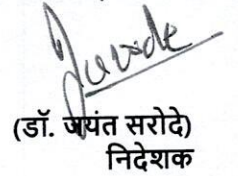 (डॉ. जयंत सरोदे)
निदेशक